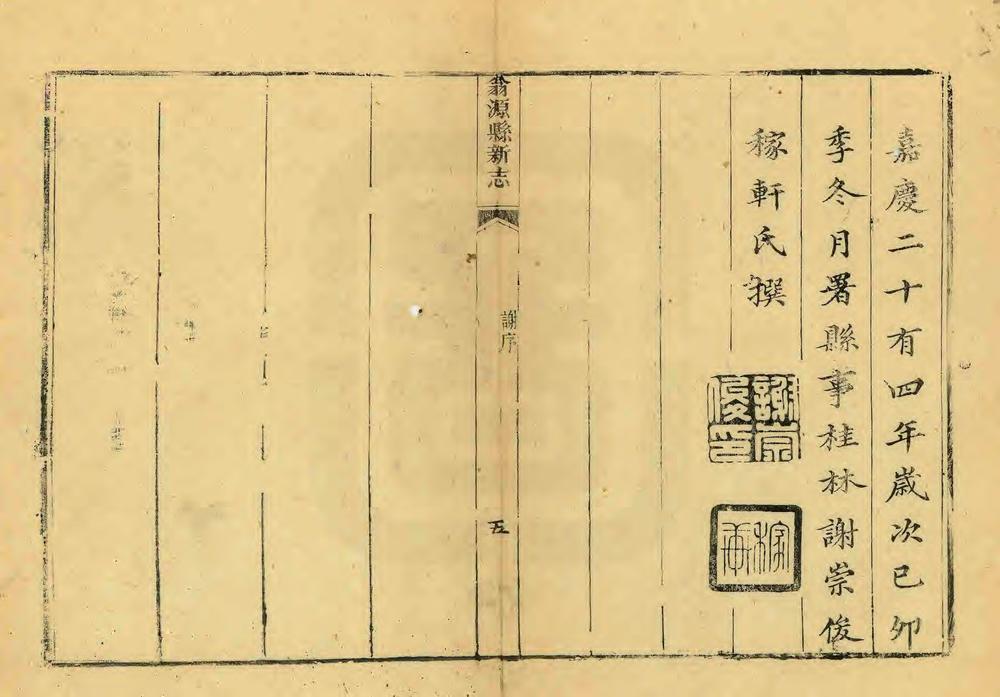 嘉慶二十有四年歲次己卯
季冬月署縣事桂林謝崇俊
稼軒氏撰
謝崇俊印
稼軒
翁源縣新志
謝序
五